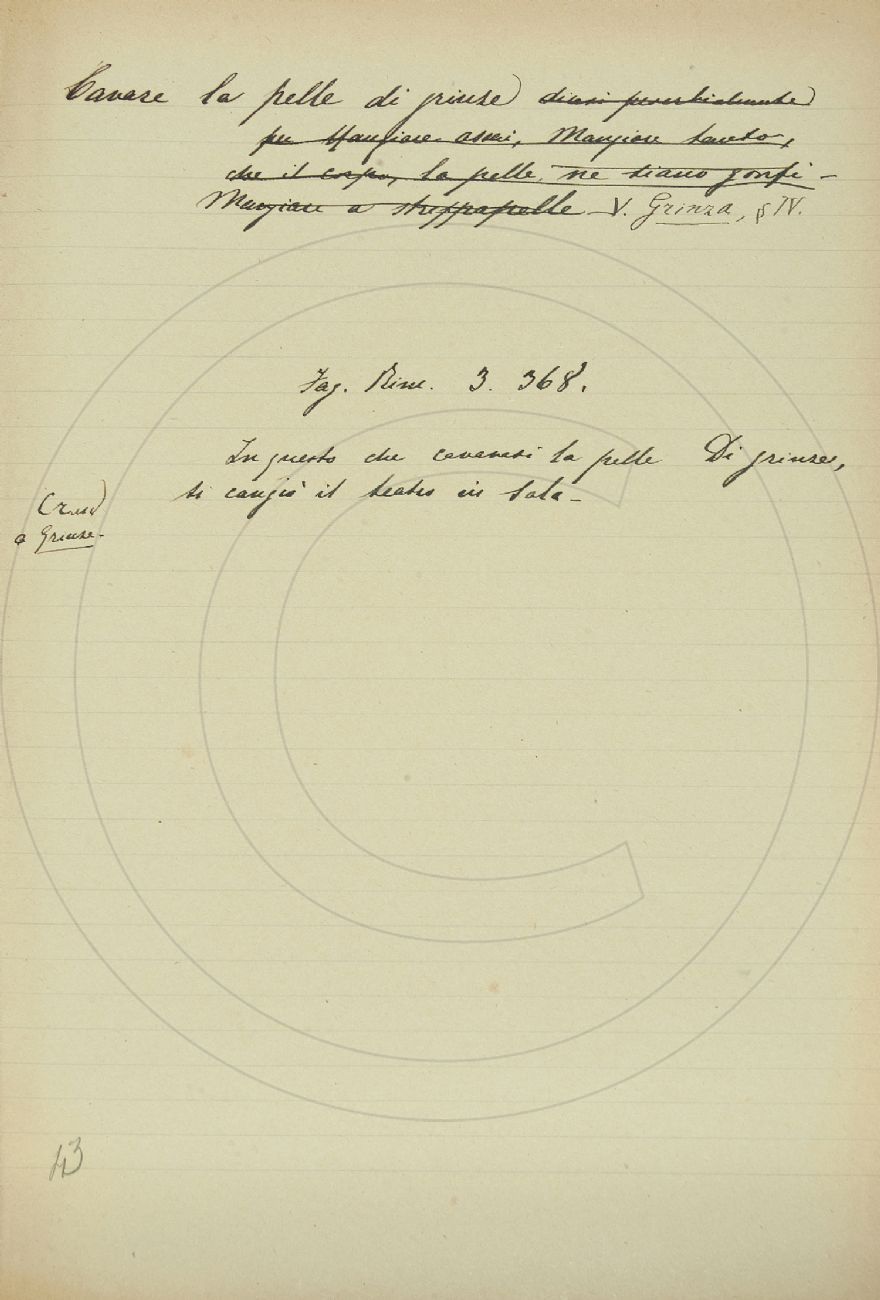 Cavare la pelle di grinze) dicesi proverbialmente)
per Mangiare assai, Mangiare tanto,
che il corpo, la pelle, ne siano gonfi -
Mangiare a strippapelle - V. Grinza, § IV.
Fag. Rim. 3. 368.
In questo che cavaronsi la pelle Di grinze,
si cangiò il teatro in sala -
a Grinze -
43